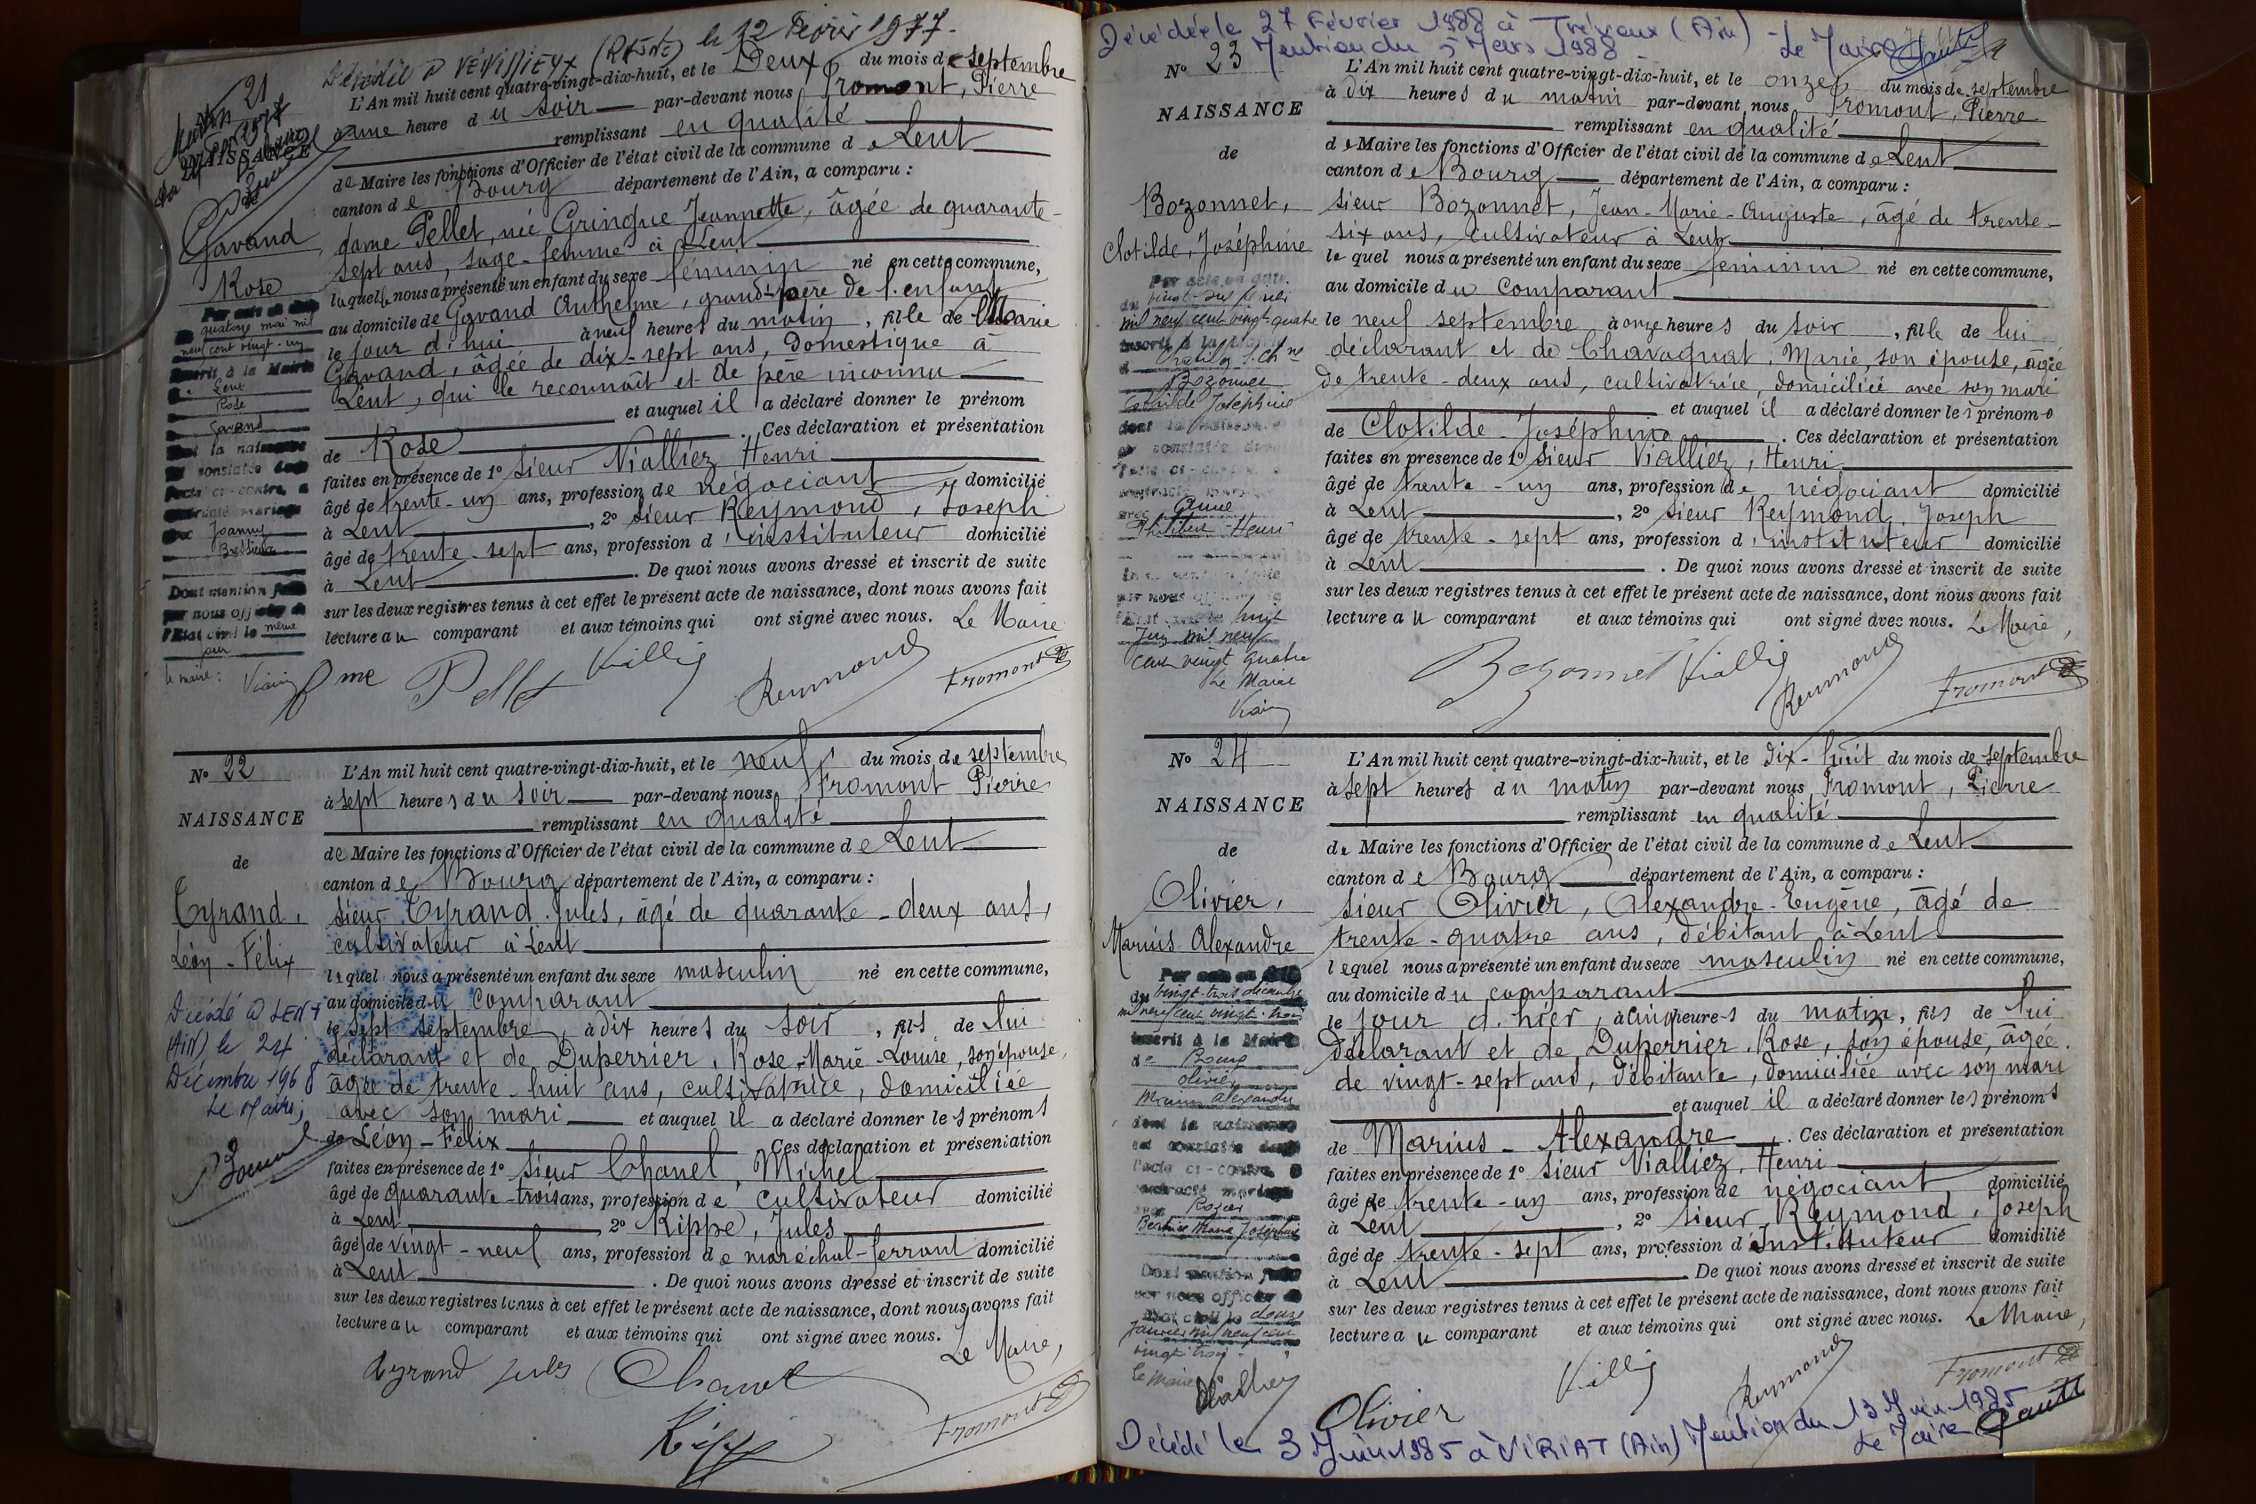 Décédée à VENISSIEUX (RHÔNE) le 12 Février 1977.
N° 21
NAISSANCE
de
Gavand
Rose
Par acte en date
du quatorze mai mil
neuf cent vingt-un
inscrit à la Mairie
de Lent
Rose
Gavand
dont la naissance
est constatée dans
l'acte ci-contre, a
contracté mariage
avec Joanny
Dont mention faite
par nous officier de
l'Etat civil le même
jour
le maire :
L'An mil huit cent quatre-vingt-dix-huit, et le Deux du mois de septembre
à une heure du soir par-devant nous Fromont, Pierre
remplissant en qualité
de Maire les fonctions d'Officier de l'état civil de la commune de Lent
canton de Bourg département de l'Ain, a comparu :
dame Pellet, née Gringue Jeannette, âgée de quarante-
sept ans, sage-femme à Lent
laquelle nous a présenté un enfant du sexe féminin né en cette commune,
au domicile de Gavand Anthelme, grand-père de l'enfant
le jour d'hui à neuf heures du matin, fille de Marie
Gavand, âgée de dix-sept ans, domestique à
Lent, qui le reconnaît et de père inconnu
et auquel il a déclaré donner le prénom
de Rose . Ces déclaration et présentation
faites en présence de 1° sieur Vialliez Henri
âgé de trente-un ans, profession de négociant domicilié
à Lent, 2° sieur Reymond, Joseph
âgé de trente-sept ans, profession d'instituteur domicilié
à Lent . De quoi nous avons dressé et inscrit de suite
sur les deux registres tenus à cet effet le présent acte de naissance, dont nous avons fait
lecture au comparant et aux témoins qui ont signé avec nous. Le Maire
fme Pellet Vialliez Reymond Fromont
N° 22
NAISSANCE
de
Tyrand,
Léon-Félix
Décédé à LENT
(AIN) le 24
Décembre 1968
Le Maire,
L'An mil huit cent quatre-vingt-dix-huit, et le neuf du mois de septembre
à sept heures du soir par-devant nous Fromont Pierre
remplissant en qualité
de Maire les fonctions d'Officier de l'état civil de la commune de Lent
canton de Bourg département de l'Ain, a comparu :
sieur Tyrand Jules, âgé de quarante-deux ans,
cultivateur à Lent
lequel nous a présenté un enfant du sexe masculin né en cette commune,
au domicile du comparant
le sept septembre, à dix heures du soir, fils de lui
déclarant et de Duperrier, Rose-Marie-Louise, son épouse,
âgée de trente-huit ans, cultivatrice, domiciliée
avec son mari et auquel il a déclaré donner les prénoms
de Léon-Félix Ces déclaration et présentation
faites en présence de 1° sieur Chanel, Michel
âgé de quarante-trois ans, profession de cultivateur domicilié
à Lent 2° Rippe, Jules
âgé de vingt-neuf ans, profession de maréchal-ferrant domicilié
à Lent . De quoi nous avons dressé et inscrit de suite
sur les deux registres tenus à cet effet le présent acte de naissance, dont nous avons fait
lecture au comparant et aux témoins qui ont signé avec nous.
Le Maire,
Tyrand Jules Chanel
Rippe Fromont
Décédée le 27 Février 1988 à Trévoux (Ain) -
Mention du 5 Mars 1988 Le Maire
N° 23
NAISSANCE
de
Bozonnet,
Clotilde, Joséphine
Par acte en date
mil neuf cent vingt-quatre
inscrit à la
Bozonnet
Clotilde Joséphine
dont la naissance
est constatée dans
l'acte ci-contre, a
contracté mariage
avec
Philibert-Henri
par nous officier
l'Etat civil le huit
Juin mil neuf
cent vingt quatre
Le Maire
L'An mil huit cent quatre-vingt-dix-huit, et le onze du mois de septembre
à dix heures du matin par-devant nous Fromont, Pierre
remplissant en qualité
de Maire les fonctions d'Officier de l'état civil de la commune de Lent
canton de Bourg département de l'Ain, a comparu :
sieur Bozonnet, Jean-Marie-Auguste, âgé de trente-
six ans, cultivateur à Lent
lequel nous a présenté un enfant du sexe féminin né en cette commune,
au domicile du comparant
le neuf septembre à onze heures du soir, fille de lui
déclarant et de Chavagnat, Marie, son épouse, âgée
de trente-deux ans, cultivatrice, domiciliée avec son mari
et auquel il a déclaré donner les prénoms
de Clotilde-Joséphine . Ces déclaration et présentation
faites en présence de 1° sieur Vialliez, Henri
âgé de trente-un ans, profession de négociant domicilié
à Lent, 2° sieur Reymond, Joseph
âgé de trente-sept ans, profession d'instituteur domicilié
à Lent . De quoi nous avons dressé et inscrit de suite
sur les deux registres tenus à cet effet le présent acte de naissance, dont nous avons fait
lecture au comparant et aux témoins qui ont signé avec nous. Le Maire,
Bozonnet Vialliez Reymond Fromont
N° 24
NAISSANCE
de
Olivier,
Marius-Alexandre
Par acte en date
du vingt-trois décembre
mil neuf cent vingt-trois
inscrit à la Mairie
de Bourg
Olivier
Marius Alexandre
dont la naissance
est constatée dans
l'acte ci-contre, a
contracté mariage
avec
Marie Joséphine
Dont mention faite
par nous officier de
l'Etat civil le douze
Janvier mil neuf cent
vingt
Le Maire
L'An mil huit cent quatre-vingt-dix-huit, et le dix-huit du mois de septembre
à sept heures du matin par-devant nous Fromont, Pierre
remplissant en qualité
de Maire les fonctions d'Officier de l'état civil de la commune de Lent
canton de Bourg département de l'Ain, a comparu :
sieur Olivier, Alexandre-Eugène, âgé de
trente-quatre ans, débitant à Lent
lequel nous a présenté un enfant du sexe masculin né en cette commune,
au domicile du comparant
le jour d'hier, à cinq heures du matin, fils de lui
déclarant et de Duperrier, Rose, son épouse, âgée
de vingt-sept ans, débitante, domiciliée avec son mari
et auquel il a déclaré donner les prénoms
de Marius-Alexandre . Ces déclaration et présentation
faites en présence de 1° sieur Vialliez, Henri
âgé de trente-un ans, profession de négociant domicilié
à Lent, 2° sieur Reymond, Joseph
âgé de trente-sept ans, profession d'Instituteur domicilié
à Lent De quoi nous avons dressé et inscrit de suite
sur les deux registres tenus à cet effet le présent acte de naissance, dont nous avons fait
lecture au comparant et aux témoins qui ont signé avec nous. Le Maire,
Olivier Vialliez Reymond Fromont
Décédé le 3 Juin 1985 à VIRIAT (Ain) Mention du 13 Juin 1985
Le Maire